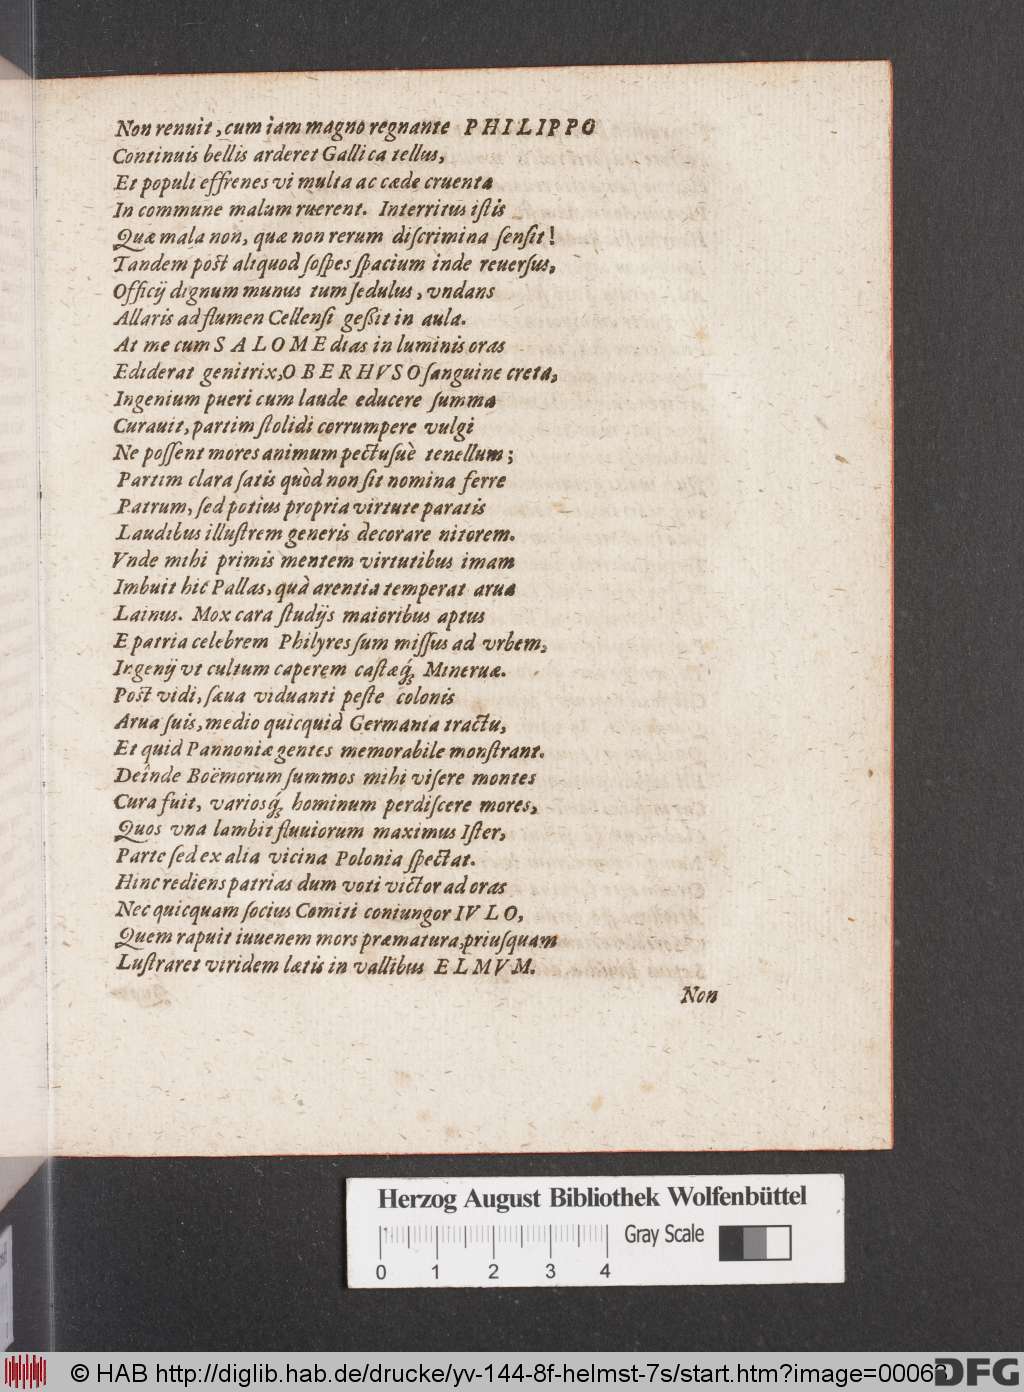 Non renuit, cum iam magno regnante PHILIPPO
Continuis bellis arderet Gallica tellus,
Et populi effrenes vi multa ac cæde cruenta
In commune malum ruerent. Interritus iſtis
Quæ mala non, quæ non rerum diſcrimina ſenſit!
Tandem poſt aliquod ſoſpes ſpacium inde reuerſus,
Officij dignum munus tum ſedulus, vndans
Allaris ad flumen Cellenſi geßit in aula.
At me cum SALOME dias in luminis oras
Ediderat genitrix, OBERHVSO ſanguine creta,
Ingenium pueri cum laude educere ſumma
Curauit, partim ſtolidi corrumpere vulgi
Ne poſſent mores animum pectuſuè tenellum;
Partim clara ſatis quòd non ſit nomina ferre
Patrum, ſed potius propria virtute paratis
Laudibus illuſtrem generis decorare nitorem.
Vnde mihi primis mentem virtutibus imam
Imbuit hic Pallas, quà arentia temperat arua
Lainus. Mox cara ſtudijs maioribus aptus
E patria celebrem Philyres ſum miſſus ad vrbem,
Ingenij vt cultum caperem caſtæq́ʒ Mineruæ.
Poſt vidi, ſæua viduanti peſte colonis
Arua ſuis, medio quicquid Germania tractu,
Et quid Pannoniæ gentes memorabile monſtrant.
Deinde Boëmorum ſummos mihi viſere montes
Cura fuit, varioſq́ʒ hominum perdiſcere mores,
Quos vna lambit fluuiorum maximus Iſter,
Parte ſed ex alia vicina Polonia ſpectat.
Hinc rediens patrias dum voti victor ad oras
Nec quicquam ſocius Comiti coniungor IVLO,
Quem rapuit iuuenem mors præmatura, priuſquam
Luſtraret viridem lætis in vallibus ELMVM.
Non
Herzog August Bibliothek Wolfenbüttel
Gray Scale
0 1 2 3 4
© HAB http://diglib.hab.de/drucke/yv-144-8f-helmst-7s/start.htm?image=00063
DFG